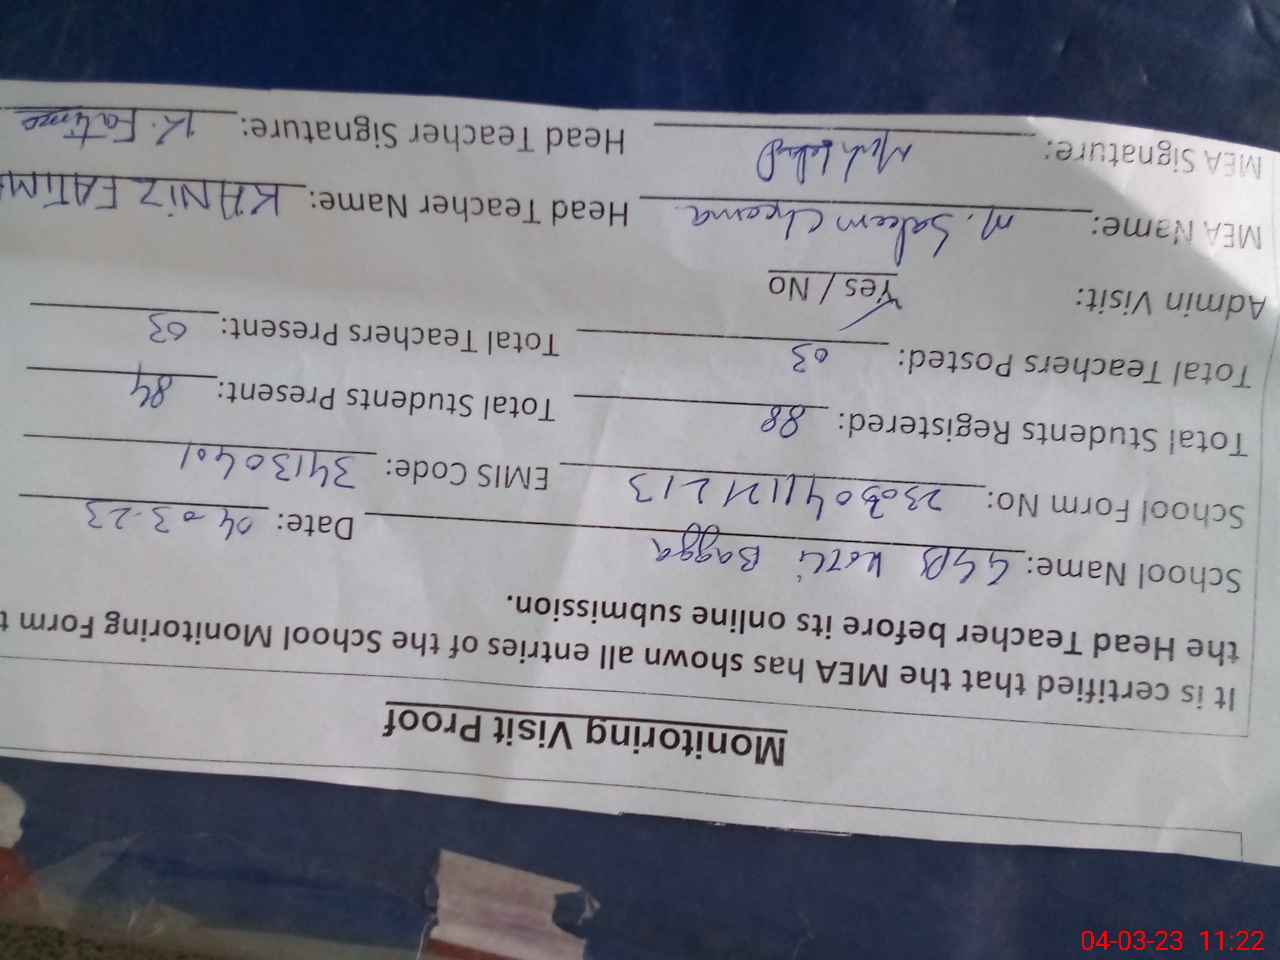 Monitoring Visit Proof
It is certified that the MEA has shown all entries of the School Monitoring Form t
the Head Teacher before its online submission.
School Name: GGPS Kotli Bagga Date: 04-03-23
School Form No: EMIS Code: 34130401
Total Students Registered: 88 Total Students Present: 84
Total Teachers Posted: 03 Total Teachers Present: 03
Admin Visit: Yes / No
MEA Name: M. Saleem Cheema Head Teacher Name: KANIZ FATIM
MEA Signature: Head Teacher Signature: K. Fatima
04-03-23 11:22